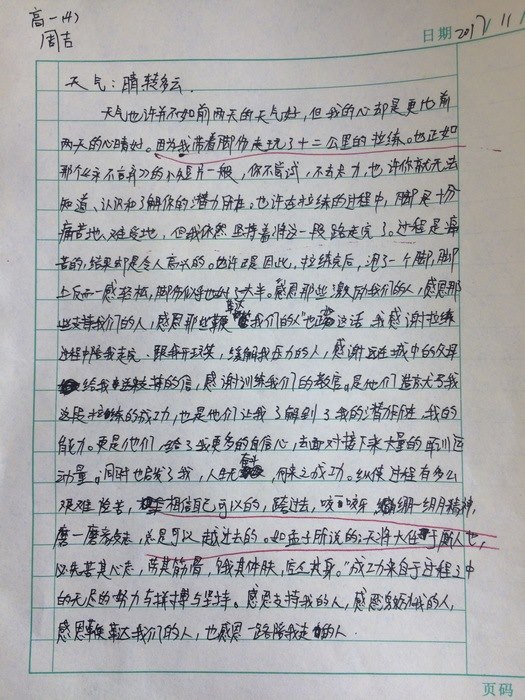 高一(4)
周吉
日期 2017/11
天气：晴转多云.
天气也许并不如前两天的天气好，但我的心却是更比前
两天的心晴好。因为我带着脚伤走玩了十二公里的拉练。也正如
那个《永不言弃》的小短片一般，你不尝试，不去尽力，也许你就无法
知道、认识和了解你的潜力所在。也许在拉练的过程中，脚是十分
痛苦地、难受地，但我依然坚持着将这一段路走完了。过程是痛
苦的，结果却是令人高兴的。也许正是因此，拉练完后，泡了一个脚，脚
上反而一感轻松，脚伤似乎也好了大半。感恩那些激励我们的人，感恩那
些支持我们的人，感恩那些鞭挞我们的人"也许这话 我感谢拉练
过程中陪我走完、跟我开玩笑，缓解我压力的人，感谢远在城中的父母
给我支持的信，感谢训练我们的教官。是他们
这段拉练的成功，也是他们让我了解到了我的潜
能力。更是他们，给了我更多的自信心，去面对接下来大量的军训运
动量。同时也启发了我，人生无奋斗，何来之成功。纵使过程有多么
艰难险苦，相信自己可以的，跨过去，咬一咬牙，绷一绷精神，
磨一磨意志，总是可以越过去的。如孟子所说的："天将大任于斯人也，
必先苦其心志，劳其筋骨，饿其体肤，空乏其身。"成功来自于过程之中
的无尽的努力与拼搏与坚持。感恩支持我的人，感恩激励我的人，
感恩鞭挞我们的人，也感恩一路陪我走的人.
页码